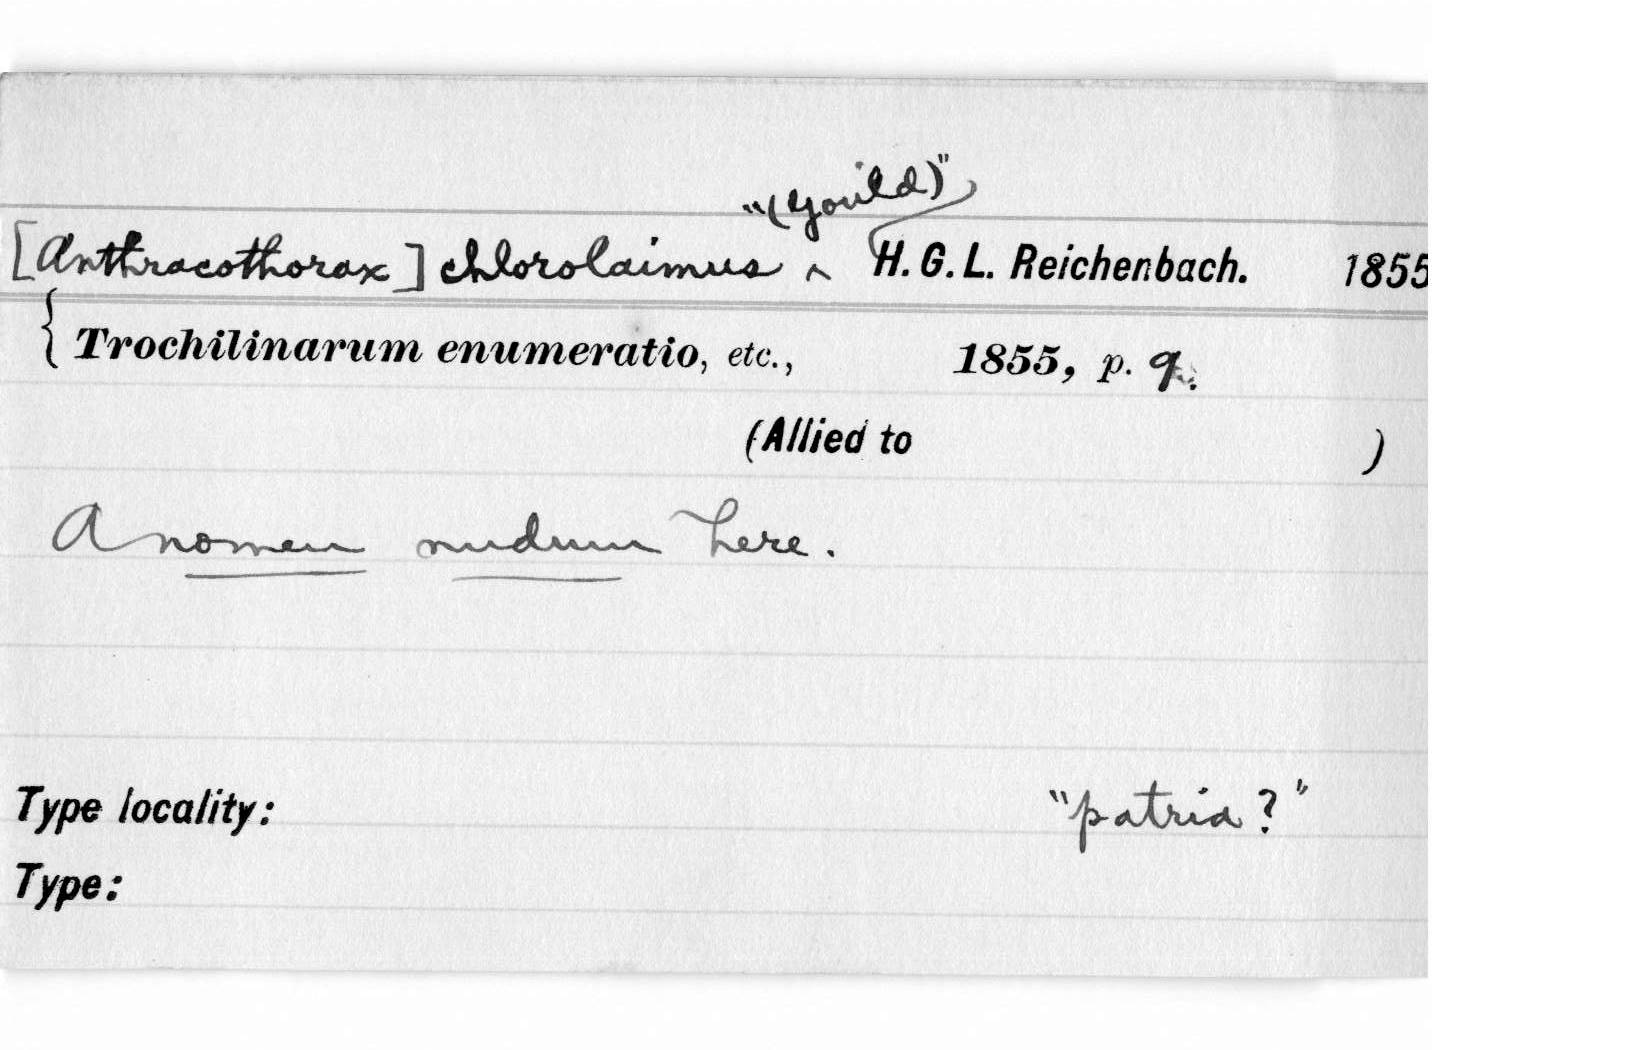 "(Gould)"
[Anthracothorax] chlorolaimus ^ H. G. L. Reichenbach. 1855
{ Trochilinarum enumeratio, etc., 1855, p. 9.
(Allied to )
A nomen nudum here.
Type locality: "patria?"
Type: